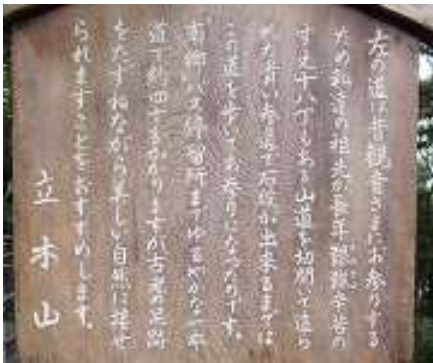 左の道は昔観音さまにお参りする
ため私達の祖先が長年艱難辛苦の
すえ十八丁もある山道を切開いて造ら
れた古い参道で石段が出来るまでは
この道を歩いてお参りになったのです。
南郷バス停留所までゆるやかな一本
道で約四十分かかりますが古老の足跡
をたずねながら美しい自然に接せ
られますことをおすすめします。
立木山